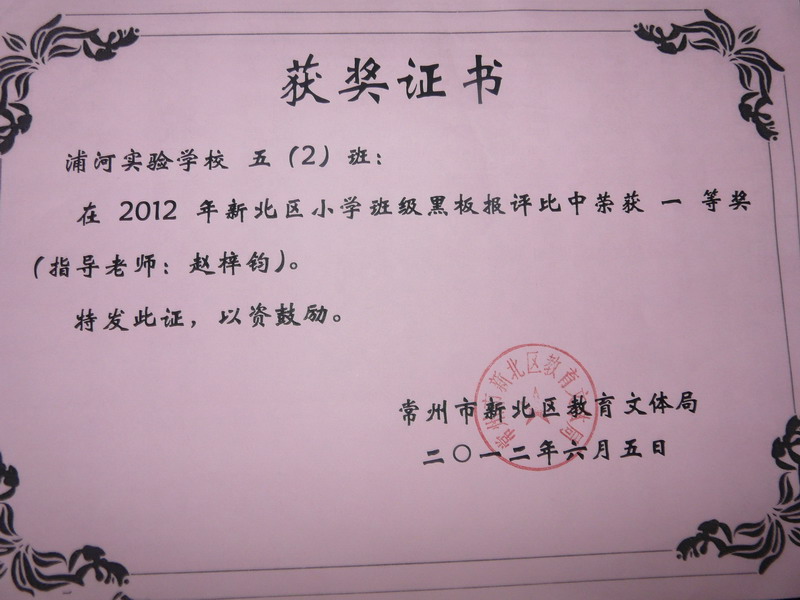 获奖证书
浦河实验学校 五（2）班：
在 2012 年新北区小学班级黑板报评比中荣获 一 等奖
（指导老师：赵梓钧）。
特发此证，以资鼓励。
常州市新北区教育文体局
二〇一二年六月五日
常州市新北区教育文体局